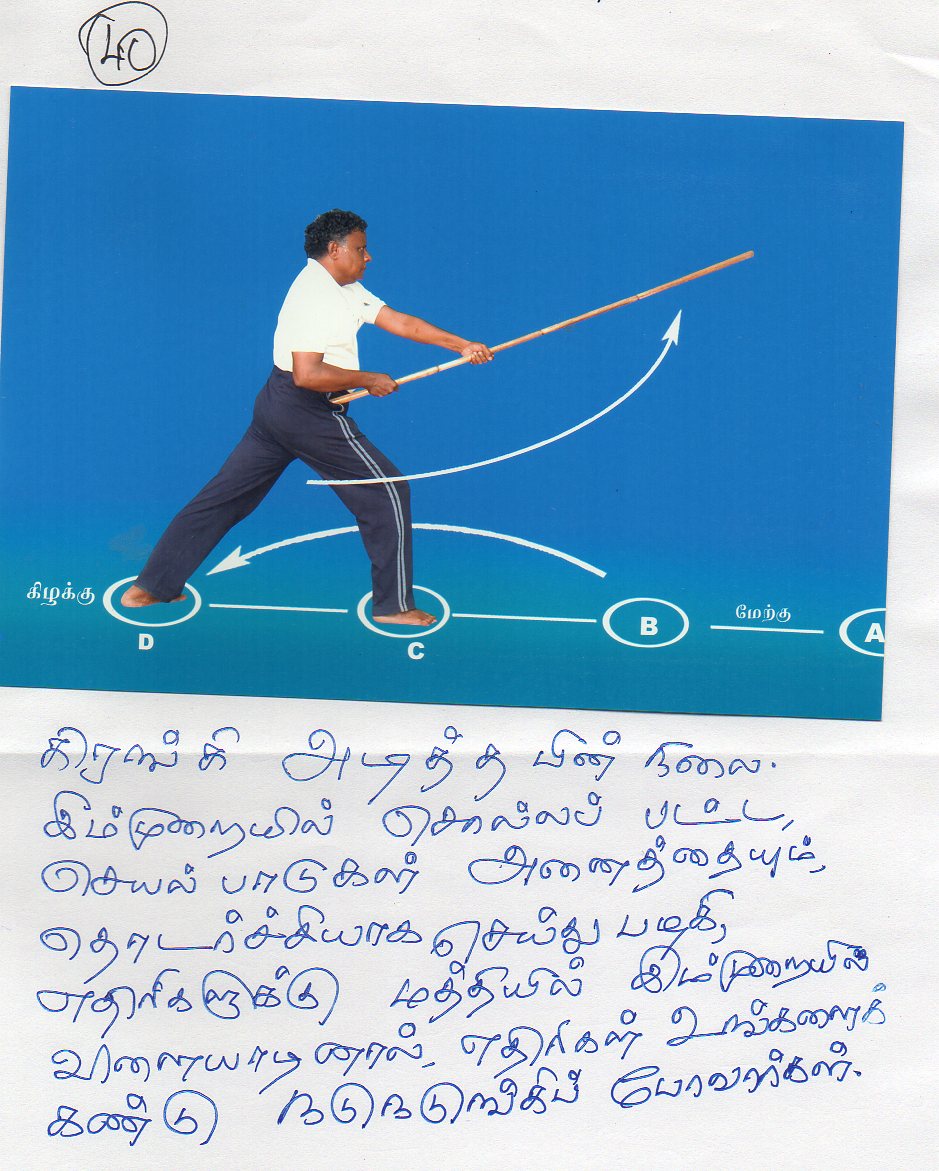 40
கிழக்கு
மேற்கு
D
C
B
A
கிறங்கி அடித்த பின் நிலை.
இம்முறையில் சொல்லப் பட்ட,
செயல் பாடுகள் அனைத்தையும்,
தொடர்ச்சியாக செய்து பழகி,
எதிரிகளுக்கு மத்தியில் இம்முறையில்
விளையாடினால், எதிரிகள் உங்களைக்
கண்டு நடுநடுங்கிப் போவார்கள்.